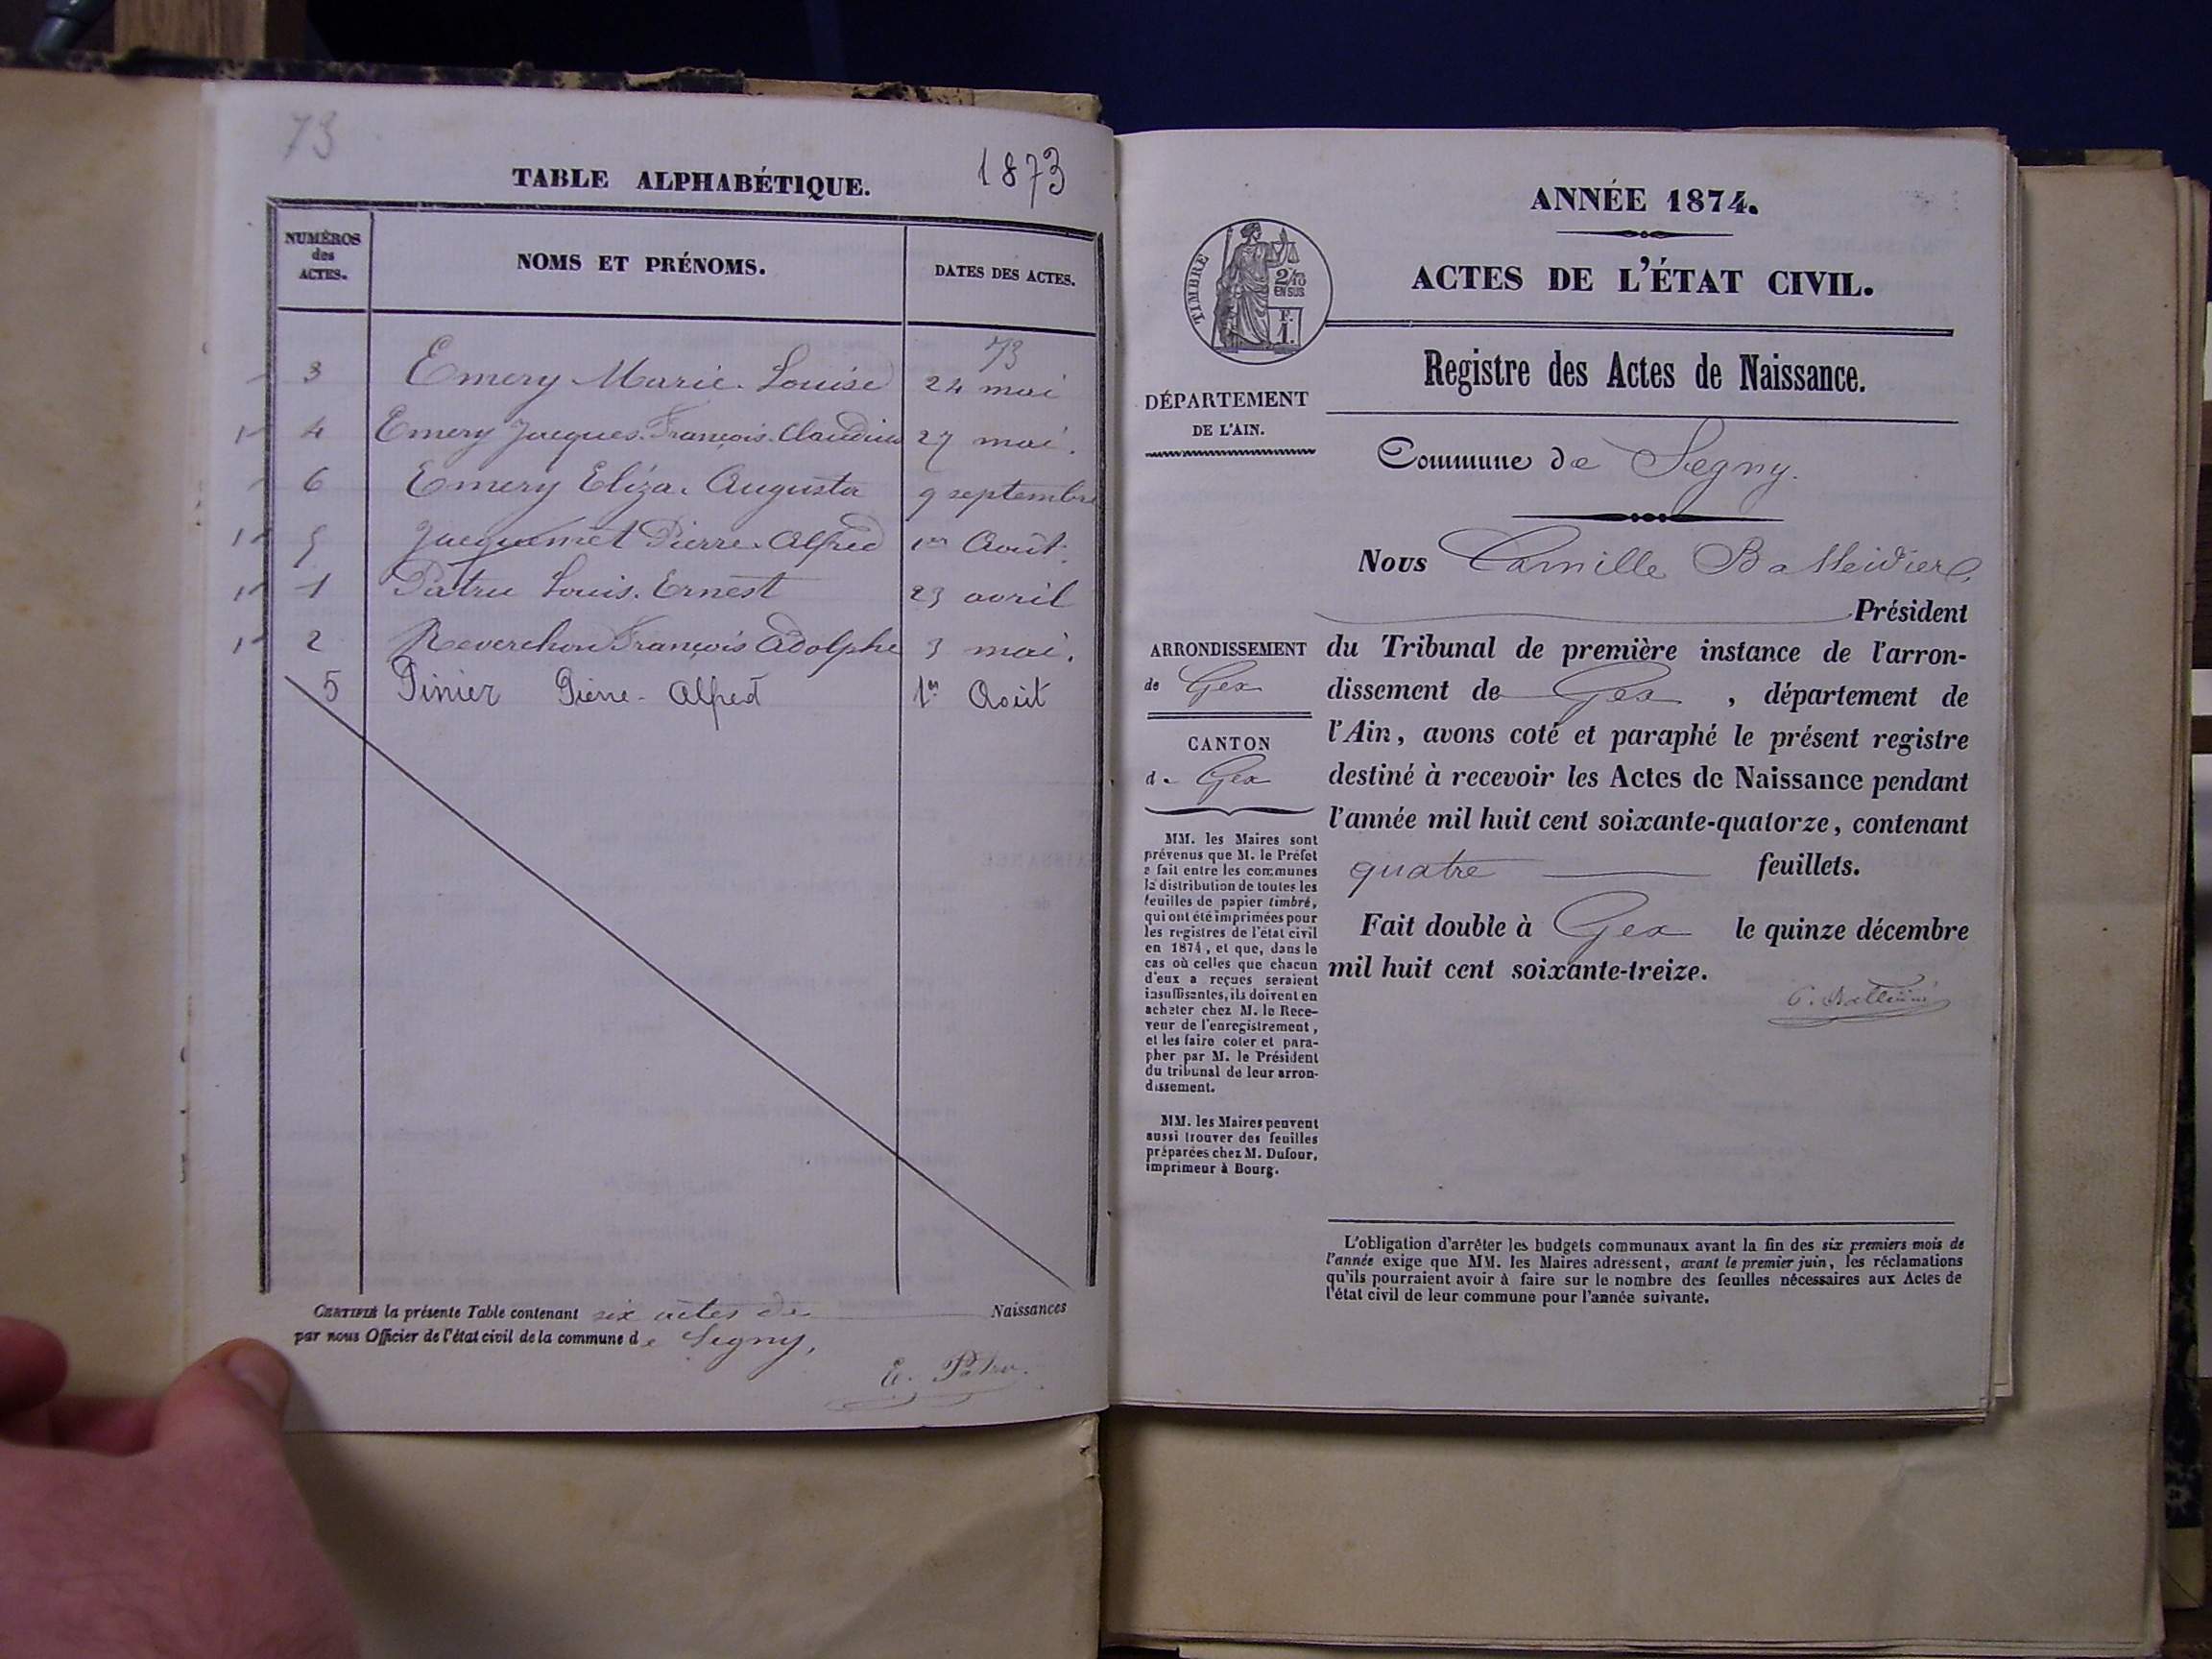 73
1873
TABLE ALPHABÉTIQUE.
NUMÉROS
des
ACTES.
NOMS ET PRÉNOMS.
DATES DES ACTES.
73
3 Emery Marie-Louise 24 mai
4 Emery Jacques-François-Claudius 27 mai.
6 Emery Eliza-Augusta 9 septembre
5 Jacquemet Pierre-Alfred 1er Août.
1 Patru Louis-Ernest 23 avril
2 Reverchon François Adolphe 3 mai.
5 Pinier Pierre-Alfred 1er Août
CERTIFIÉ la présente Table contenant six actes de Naissances
par nous Officier de l'état civil de la commune de Segny,
E. Patru.
ANNÉE 1874.
ACTES DE L'ÉTAT CIVIL.
TIMBRE
2/10
EN SUS
F.
1.
Registre des Actes de Naissance.
DÉPARTEMENT
DE L'AIN.
Commune de Segny.
Nous Camille Balleidier,
Président
ARRONDISSEMENT
de Gex
CANTON
de Gex
du Tribunal de première instance de l'arron-
dissement de Gex , département de
l'Ain, avons coté et paraphé le présent registre
destiné à recevoir les Actes de Naissance pendant
l'année mil huit cent soixante-quatorze, contenant
quatre feuillets.
Fait double à Gex le quinze décembre
mil huit cent soixante-treize.
MM. les Maires sont
prévenus que M. le Préfet
a fait entre les communes
la distribution de toutes les
feuilles de papier timbré,
qui ont été imprimées pour
les registres de l'état civil
en 1874, et que, dans le
cas où celles que chacun
d'eux a reçues seraient
insuffisantes, ils doivent en
acheter chez M. le Rece-
veur de l'enregistrement,
et les faire coter et para-
pher par M. le Président
du tribunal de leur arron-
dissement.
MM. les Maires peuvent
aussi trouver des feuilles
préparées chez M. Dufour,
imprimeur à Bourg.
L'obligation d'arrêter les budgets communaux avant la fin des six premiers mois de
l'année exige que MM. les Maires adressent, avant le premier juin, les réclamations
qu'ils pourraient avoir à faire sur le nombre des feuilles nécessaires aux Actes de
l'état civil de leur commune pour l'année suivante.